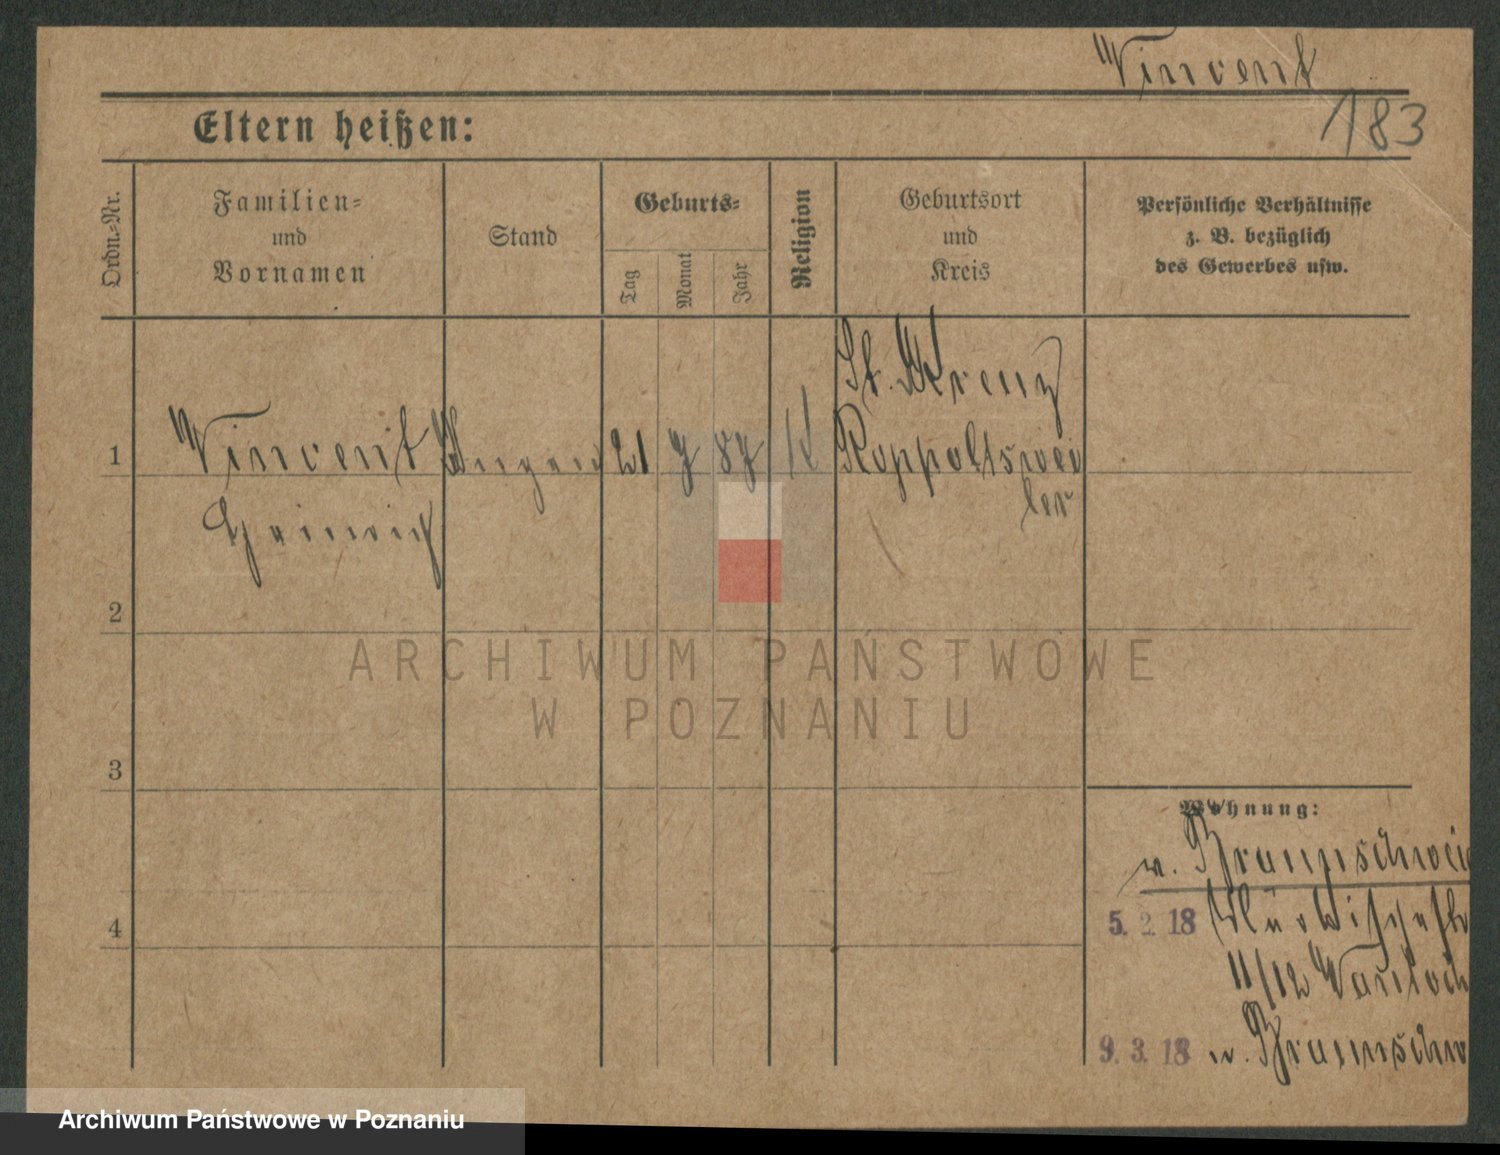 Vincent
183
Eltern heißen:
Ordn.-Nr.
Familien-
und
Vornamen
Stand
Geburts-
Tag
Monat
Jahr
Religion
Geburtsort
und
Kreis
Persönliche Verhältnisse
z. B. bezüglich
des Gewerbes usw.
St. Kreuz
1 Vincent 21 7 87 K Rappoltswei
ler
Heinrich
2
ARCHIWUM PAŃSTWOWE
W POZNANIU
3
Wohnung:
n. Braunschwei
4
5. 2. 18
11/12
9. 3. 18 n. Braunschw
Archiwum Państwowe w Poznaniu